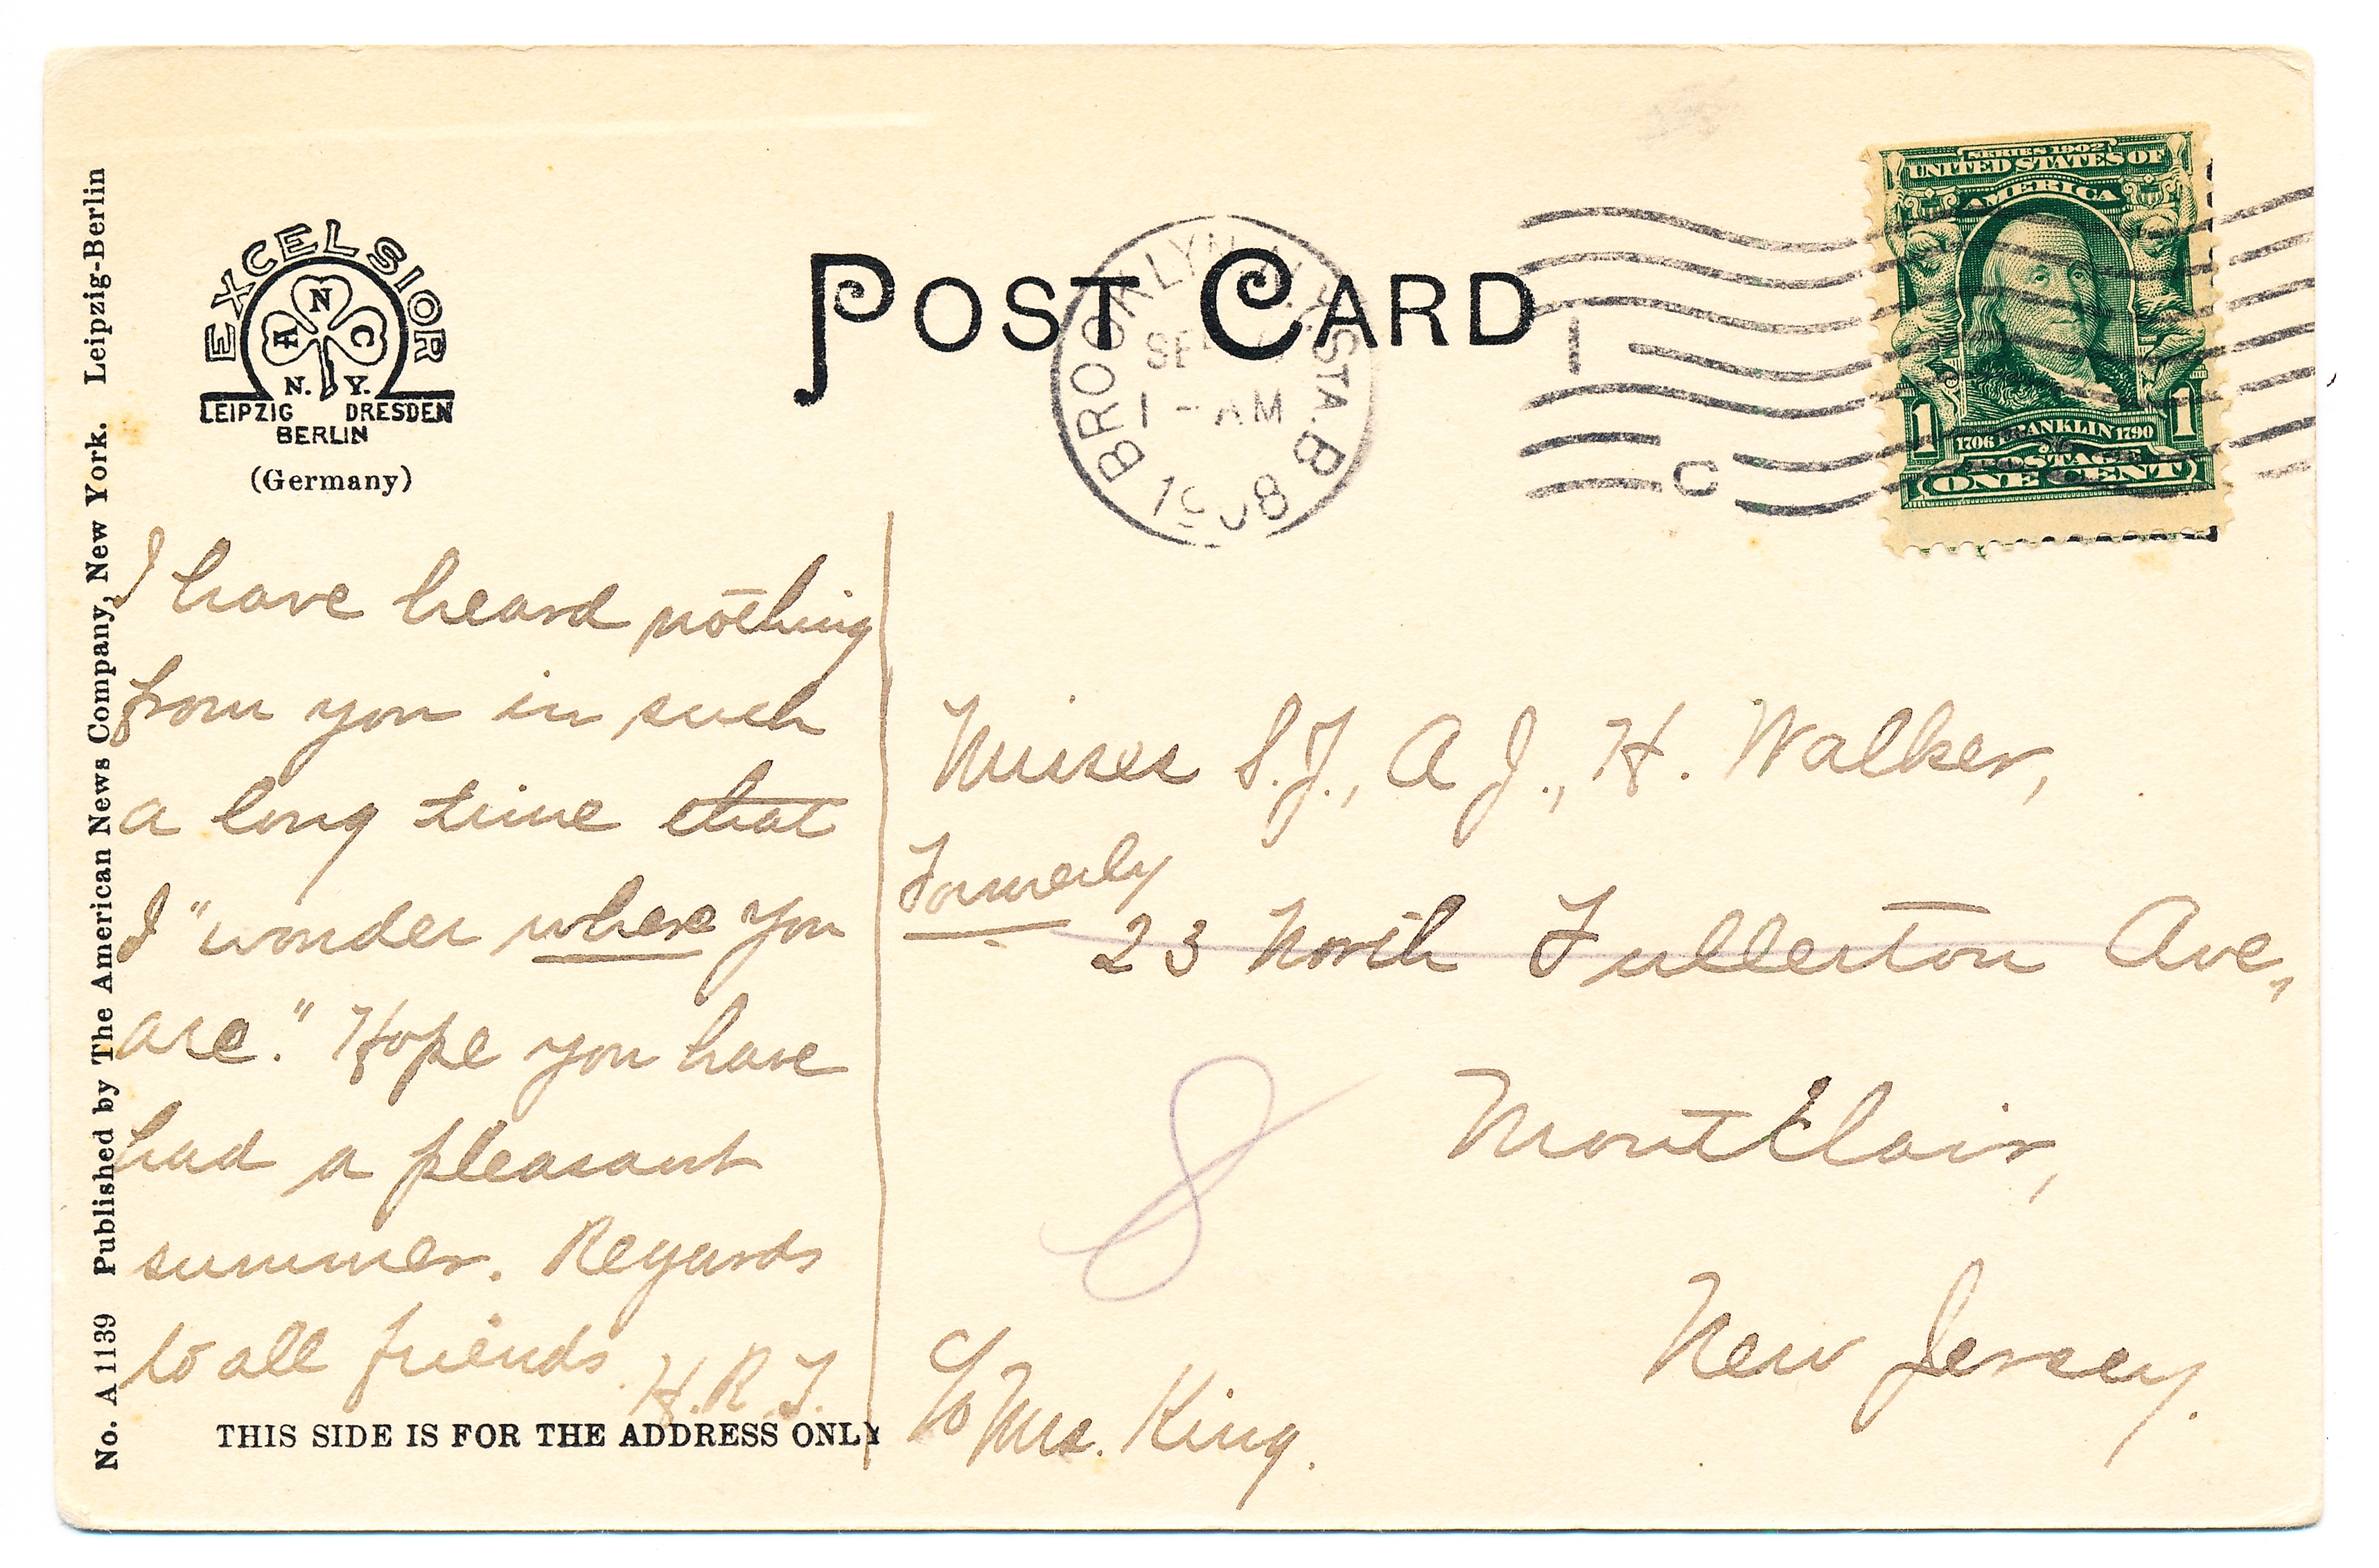 No. A 1139 Published by The American News Company, New York. Leipzig-Berlin
EXCELSIOR
A N C
N. Y.
LEIPZIG DRESDEN
BERLIN
(Germany)
POST CARD
BROOKLYN, N.Y. STA. B
1 - AM
1908
1
C
SERIES 1902
UNITED STATES OF
AMERICA
1 1706 FRANKLIN 1790 1
POSTAGE
ONE CENT
I have heard nothing
from you in such
a long time that
I "wonder where you
are." Hope you have
had a pleasant
summer. Regards
to all friends.
H.R.T.
THIS SIDE IS FOR THE ADDRESS ONLY
Misses S.J., A J., H. Walker,
Formerly
23 North Fullerton Ave.,
8
Montclair,
New Jersey.
c/o Mrs. King.